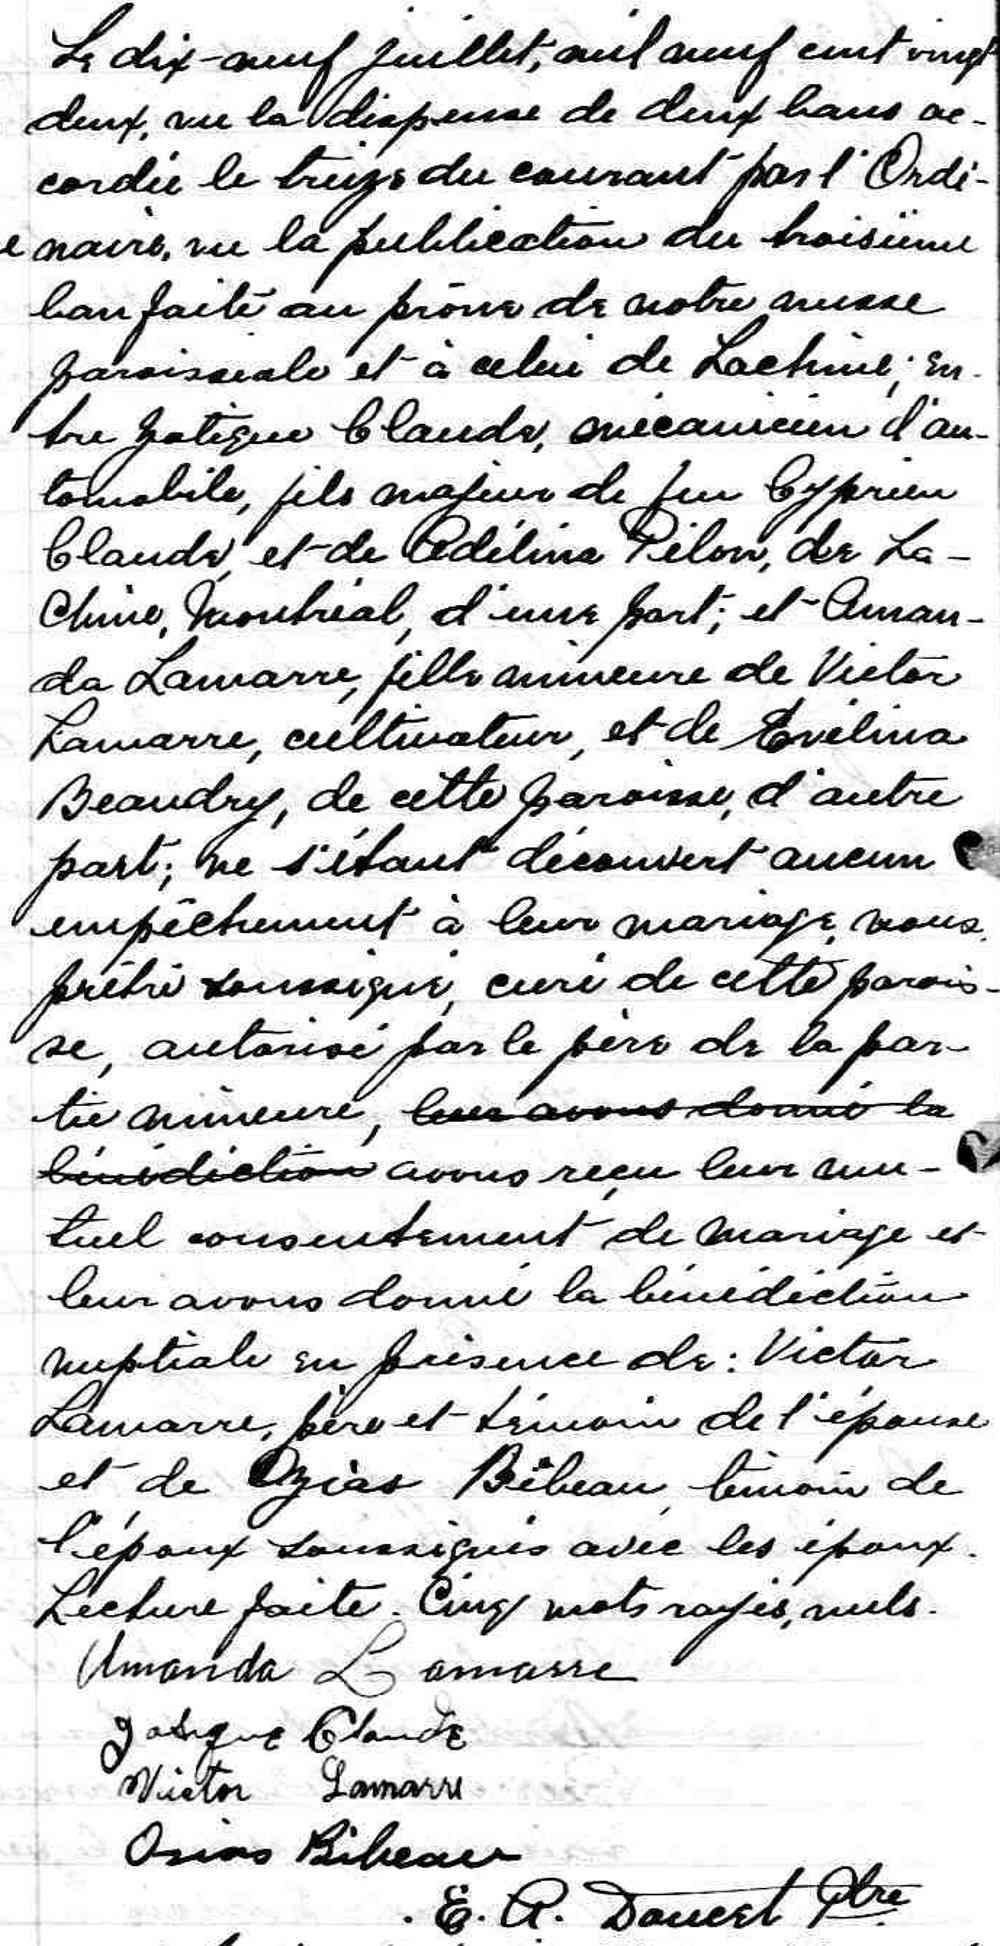 Le dix-neuf juillet, mil neuf cent vingt
deux, vu la dispense de deux bans ac-
cordée le treize du courant par l'Ordi-
naire, vu la publication du troisième
ban faite au prône de notre messe
paroissiale et à celui de Lachine; en-
tre Jatique Claude, mécanicien d'au-
tomobile, fils majeur de feu Cyprien
Claude, et de Adélina Pilon, de La-
Chine, Montréal, d'une part; et Aman-
da Lamarre, fille mineure de Victor
Lamarre, cultivateur, et de Evélina
Beaudry, de cette paroisse, d'autre
part; ne s'étant découvert aucun
empêchement à leur mariage, nous,
prêtre soussigné, curé de cette parois-
se, autorisé par le père de la par-
tie mineure, leur avons donné la
bénédiction avons reçu leur mu-
tuel consentement de mariage et
leur avons donné la bénédiction
nuptiale en présence de: Victor
Lamarre, père et témoin de l'épouse
et de Ozias Bibeau, témoin de
l'époux soussignés avec les époux.
Lecture faite. Cinq mots rayés, nuls.
Amanda Lamarre
Claude
Victor Lamarre
Osias Bibeau
E. A. Doucet Ptre